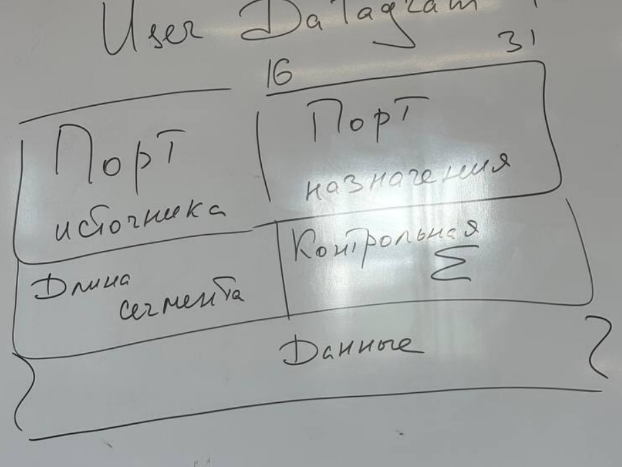 User Datagram
16 31
Порт
источника
Порт
назначения
Длина
сегмента
Контрольная
Σ
Данные